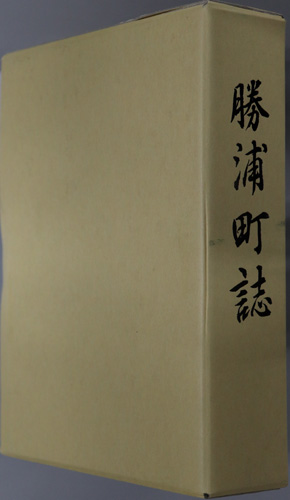 勝浦町誌